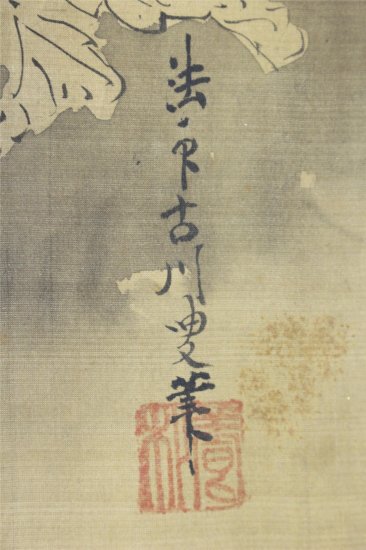 法印古川叟筆